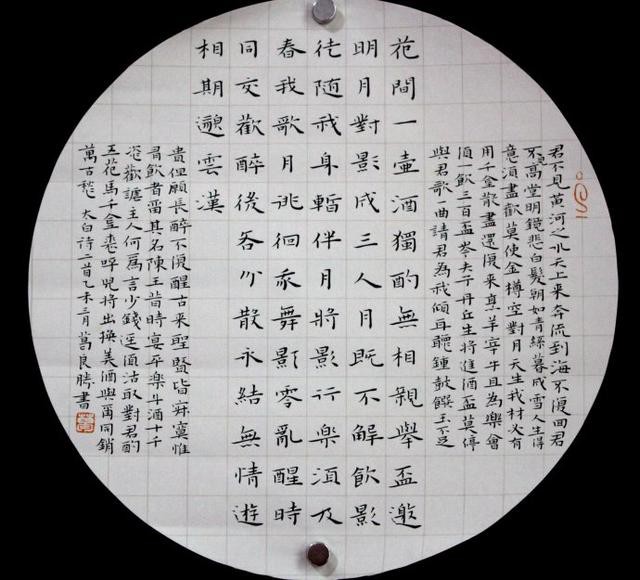 君不見黃河之水天上来奔流到海不復回君
不見高堂明鏡悲白髮朝如青絲暮成雪人生得
意須盡歡莫使金樽空對月天生我材必有
用千金散盡還復来烹羊宰牛且為樂會
須一飲三百盃岑夫子丹丘生將進酒盃莫停
與君歌一曲請君為我傾耳聽鍾鼓饌玉不足
花間一壺酒獨酌無相親舉盃邀
明月對影成三人月既不解飲影
徒隨我身暫伴月將影行樂須及
春我歌月徘徊我舞影零亂醒時
同交歡醉後各分散永結無情遊
相期邈雲漢
貴但願長醉不復醒古来聖賢皆寂寞惟
有飲者留其名陳王昔時宴平樂斗酒十千
恣歡謔主人何為言少錢徑須沽取對君酌
五花馬千金裘呼兒將出換美酒與爾同銷
萬古愁 太白詩二首乙未三月葛良勝書